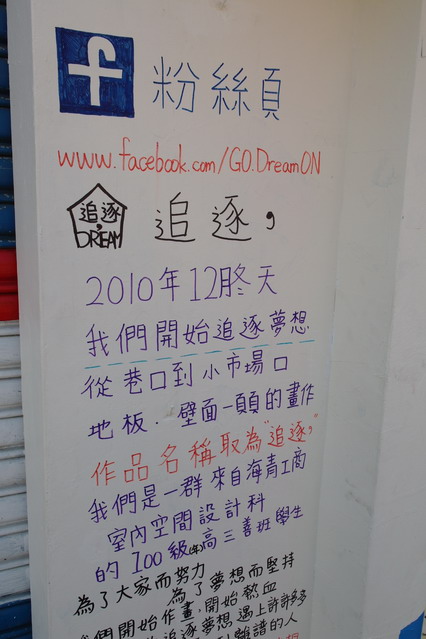 f 粉絲頁
www.facebook.com/GO.DreamON
追逐，DREAM 追逐，
2010年12月冬天
我們開始追逐夢想
從巷口到小市場口
地板．壁面一顆顆的畫作
作品名稱取為"追逐，"
我們是一群來自海青工商
室內空間設計科
的100級高三善班學生
為了大家而努力
為了夢想而堅持
我們開始作畫，開始熱血
追逐夢想 遇上許許多多
的人